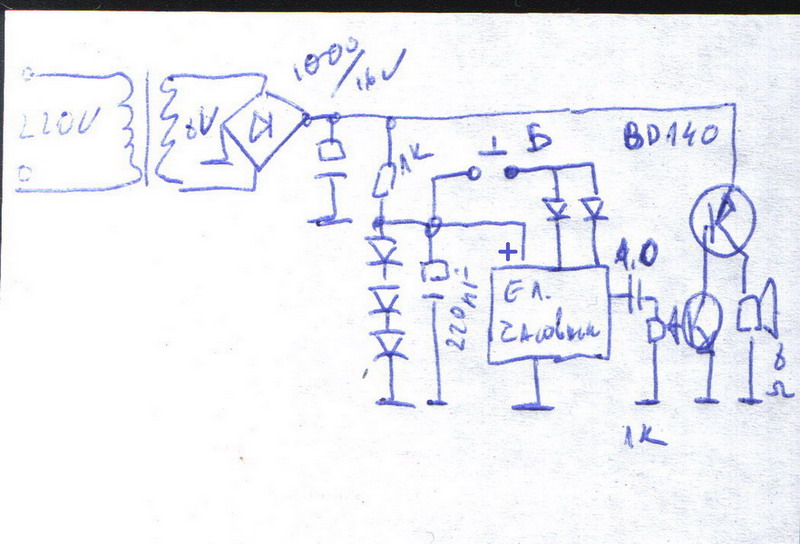 1000/16V
220V
8V
1K
Б
BD140
+
1,0
ЕЛ.
часовник
8
Ω
1K